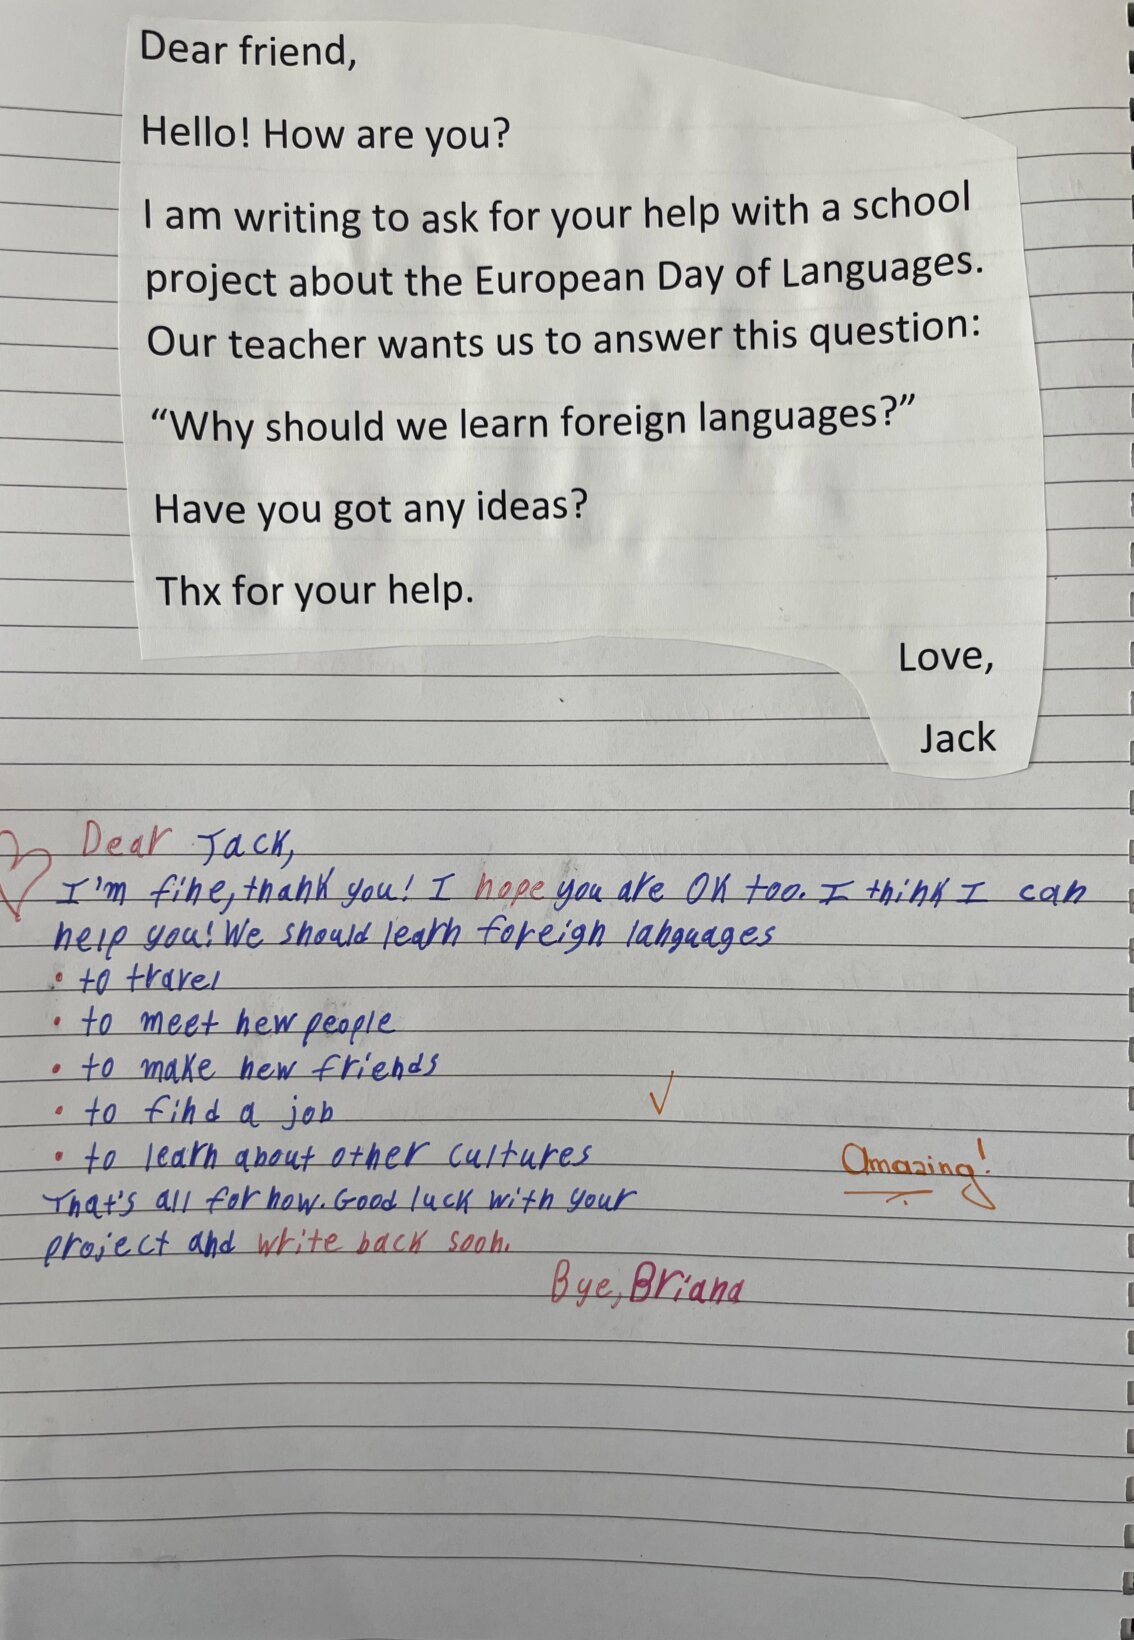 Dear friend,
Hello! How are you?
I am writing to ask for your help with a school
project about the European Day of Languages.
Our teacher wants us to answer this question:
“Why should we learn foreign languages?”
Have you got any ideas?
Thx for your help.
Love,
Jack
Dear Jack,
I'm fine, thank you! I hope you are OK too. I think I can
help you! We should learn foreign languages
• to travel
• to meet new people
• to make new friends
• to find a job
• to learn about other cultures
Amazing!
That's all for now. Good luck with your
project and write back soon.
Bye, Briana